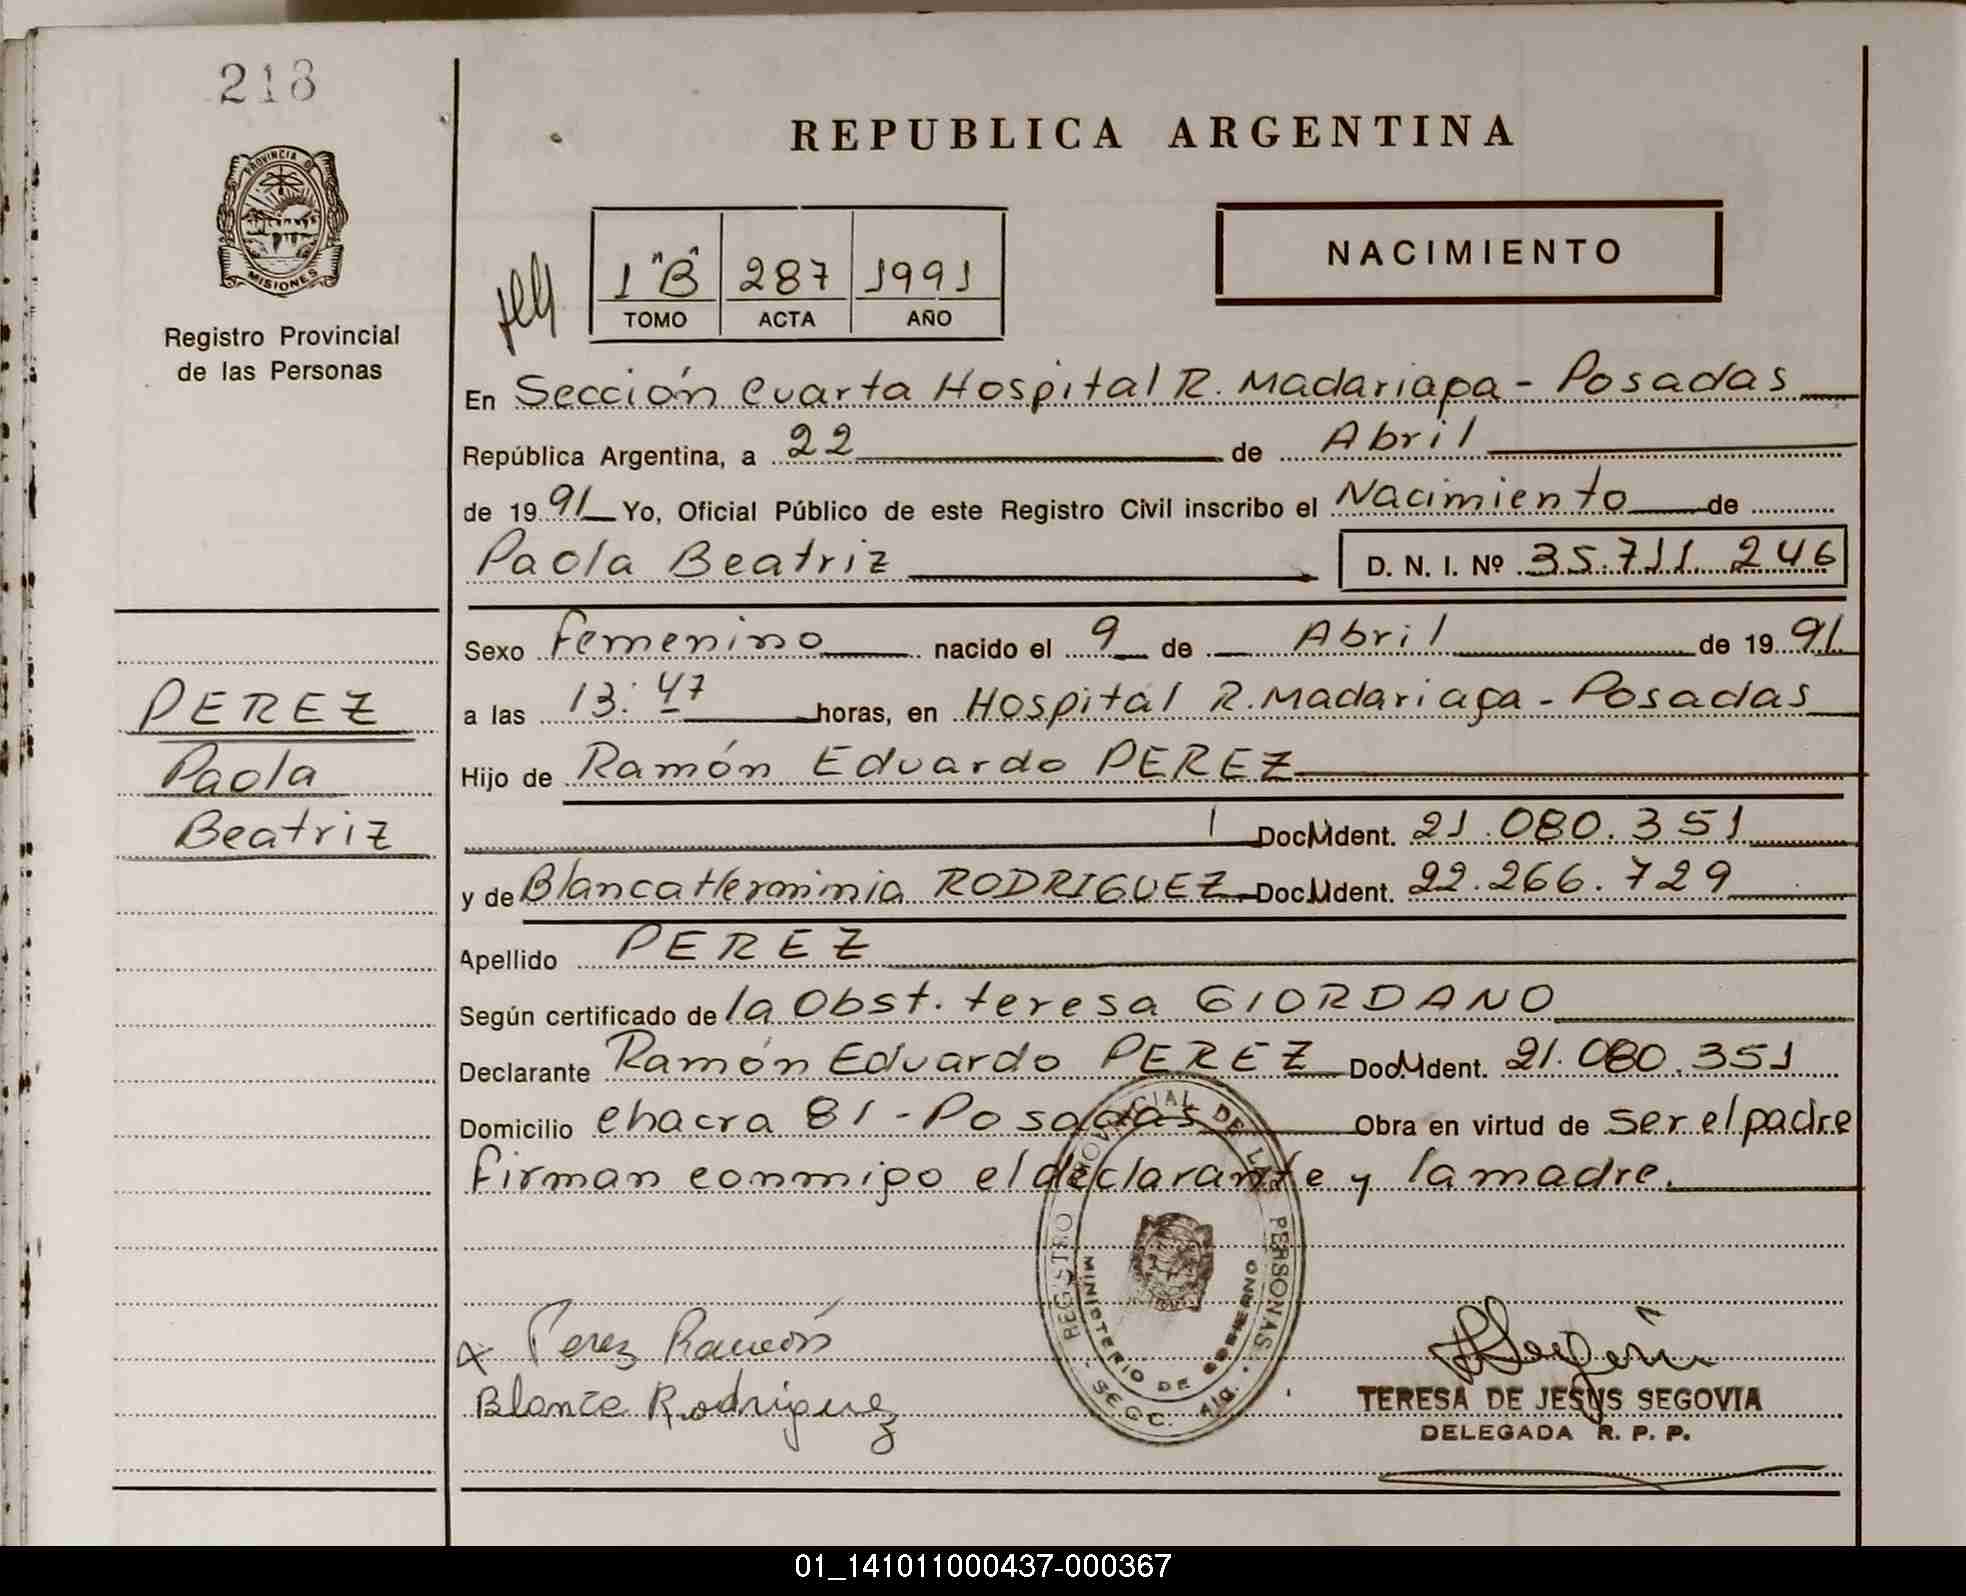 218
PROVINCIA DE
MISIONES
Registro Provincial
de las Personas
REPUBLICA ARGENTINA
1 "B" 287 1991
TOMO ACTA AÑO
NACIMIENTO
En Sección Cuarta Hospital R. Madariaga - Posadas
República Argentina, a 22 de Abril
de 1991 Yo, Oficial Público de este Registro Civil inscribo el Nacimiento de
Paola Beatriz D. N. I. Nº 35.711.246
Sexo Femenino nacido el 9 de Abril de 1991
a las 13:47 horas, en Hospital R. Madariaga - Posadas
Hijo de Ramón Eduardo PEREZ
Doc. Ident. 21.080.351
y de Blanca Herminia RODRIGUEZ Doc. Ident. 22.266.729
Apellido PEREZ
Según certificado de la Obst. teresa GIORDANO
Declarante Ramón Eduardo PEREZ Doc. Ident. 21.080.351
Domicilio chacra 81 - Posadas Obra en virtud de ser el padre
Firman conmigo el declarante y la madre.
PEREZ
Paola
Beatriz
REGISTRO PROVINCIAL DE LAS PERSONAS
MINISTERIO DE GOBIERNO
Perez Ramón
Blanca Rodriguez
TERESA DE JESUS SEGOVIA
DELEGADA R. P. P.
01_141011000437-000367